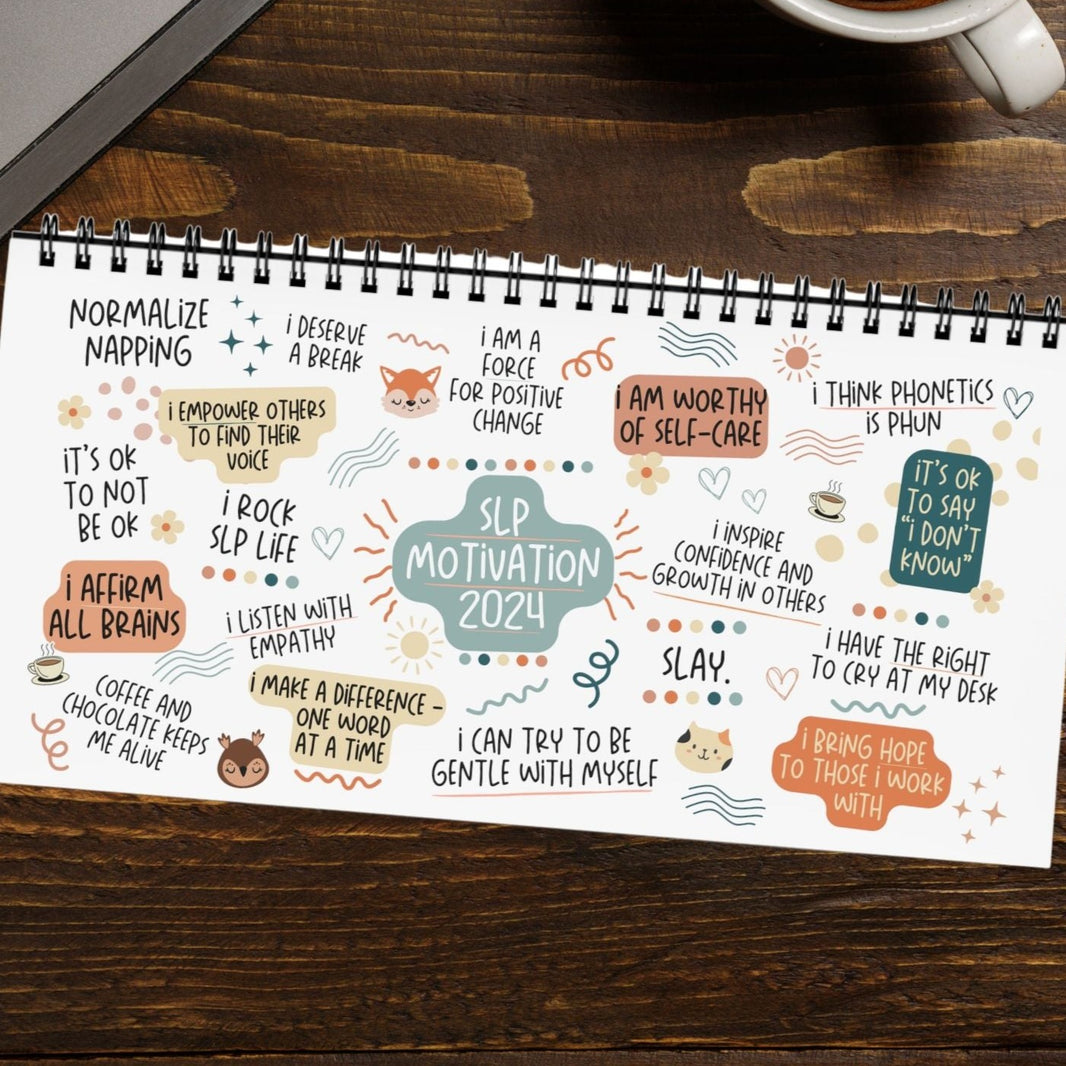 NORMALIZE
NAPPING
i DESERVE
A BREAK
i AM A
FORCE
FOR POSITIVE
CHANGE
i AM WORTHY
OF SELF-CARE
i THINK PHONETICS
IS PHUN
i EMPOWER OTHERS
TO FIND THEIR
VOICE
iT'S OK
TO NOT
BE OK
i ROCK
SLP LIFE
SLP
MOTiVATiON
2024
i INSPIRE
CONFIDENCE AND
GROWTH IN OTHERS
iT'S OK
TO SAY
"i DON'T
KNOW"
i AFFIRM
ALL BRAINS
i LISTEN WITH
EMPATHY
SLAY.
i HAVE THE RiGHT
TO CRY AT MY DESK
COFFEE AND
CHOCOLATE KEEPS
ME ALIVE
i MAKE A DiFFERENCE -
ONE WORD
AT A TIME
i CAN TRY TO BE
GENTLE WiTH MYSELF
i BRING HOPE
TO THOSE i WORK
WiTH